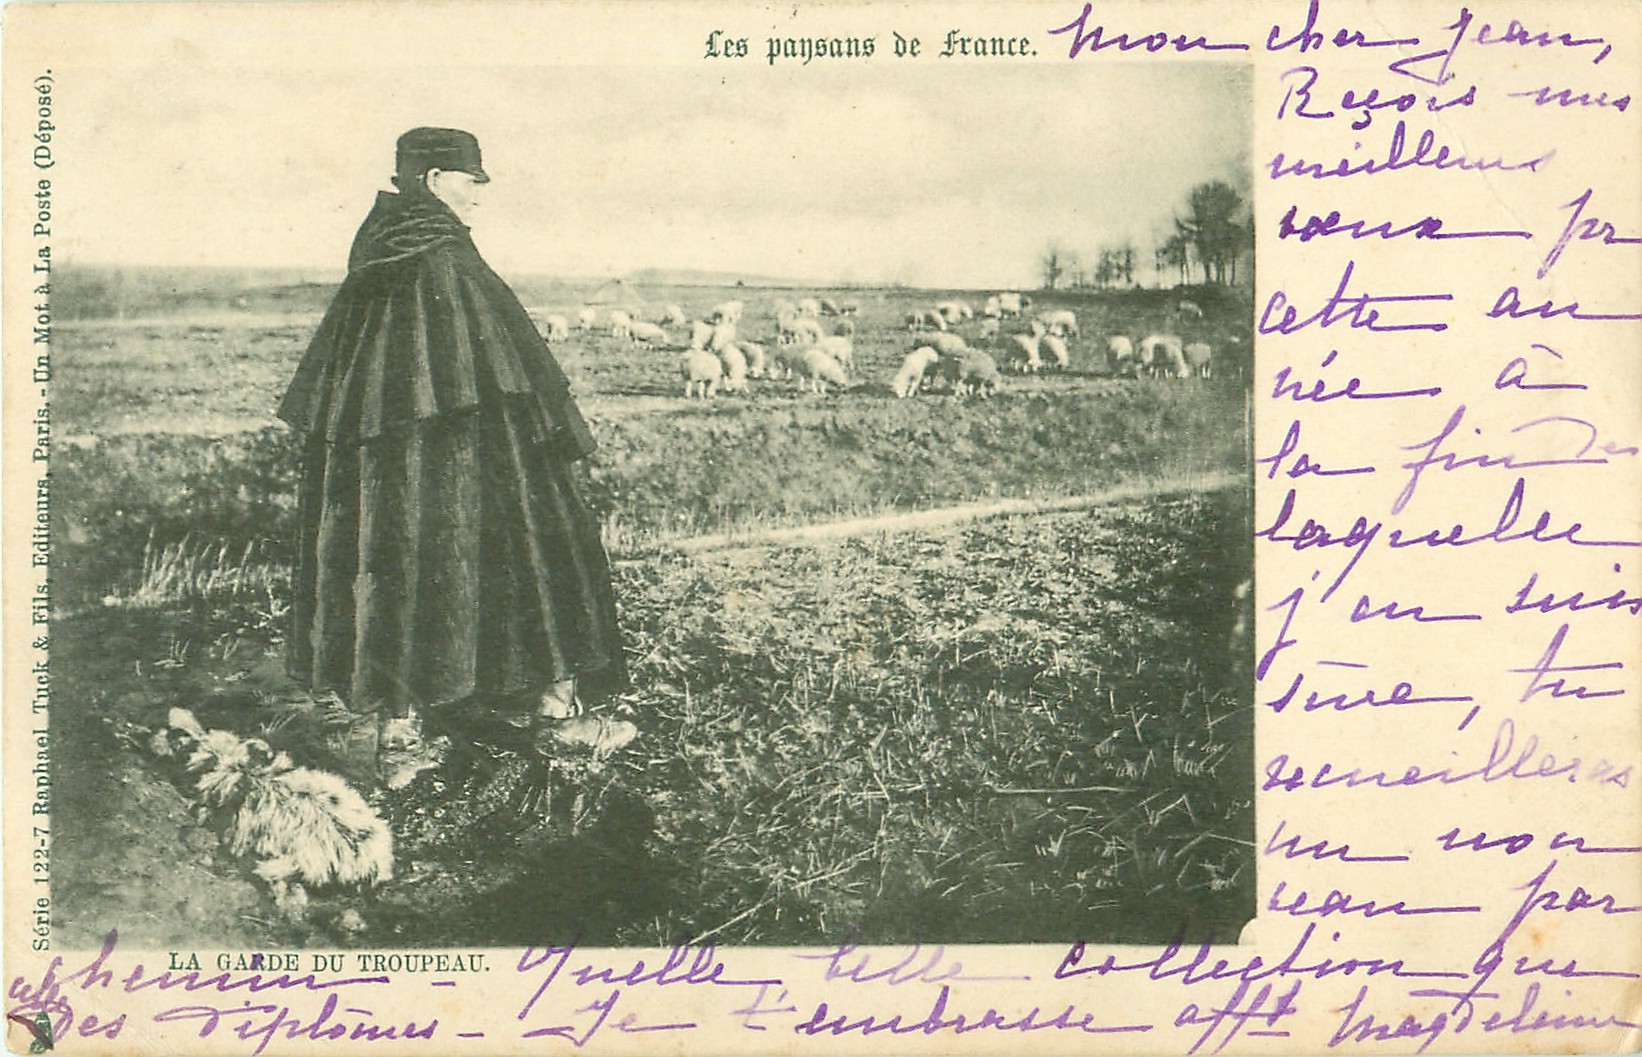 Les paysans de France.
Mon cher Jean,
Reçois mes
meilleurs
vœux pr
cette an
née à
la fin de
laquelle
j'en suis
sûre, tu
recueilleras
un nou
veau par
chemin - Quelle belle collection que
celle
des diplômes - Je t'embrasse afft Magdeleine
LA GARDE DU TROUPEAU.
Série 122-7 Raphael Tuck & Fils, Editeurs, Paris. - Un Mot à La Poste (Déposé).